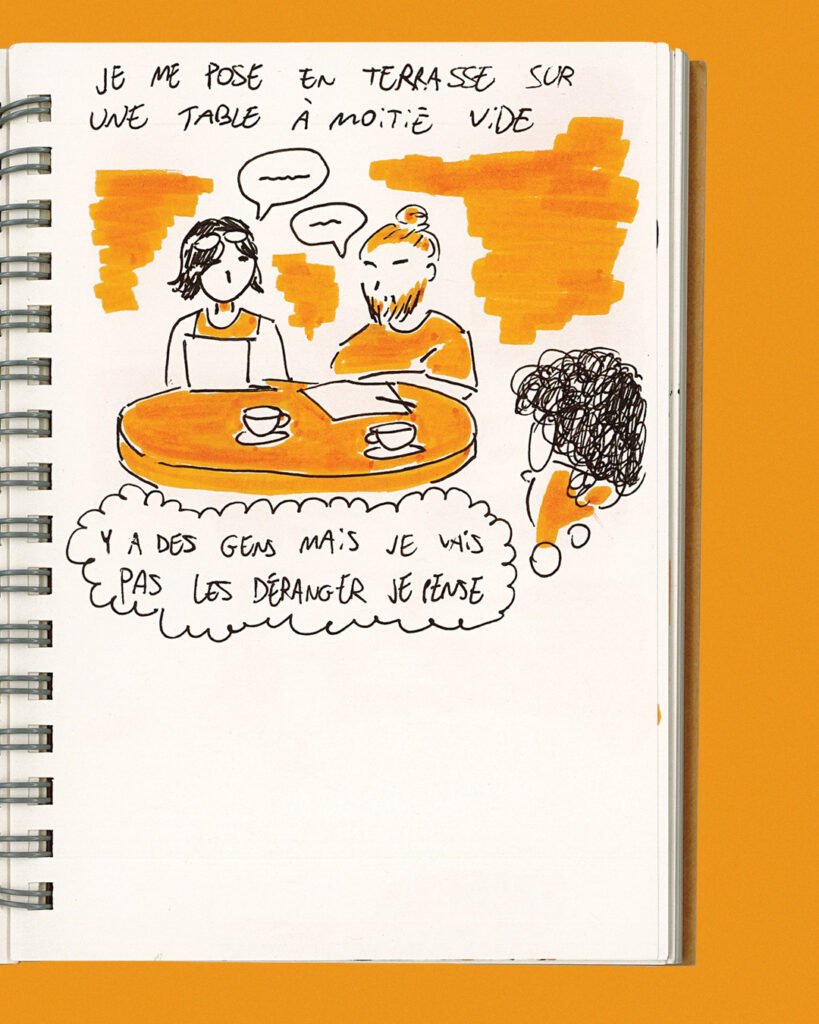 JE ME POSE EN TERRASSE SUR
UNE TABLE À MOITIÉ VIDE
Y A DES GENS MAIS JE VAIS
PAS LES DÉRANGER JE PENSE